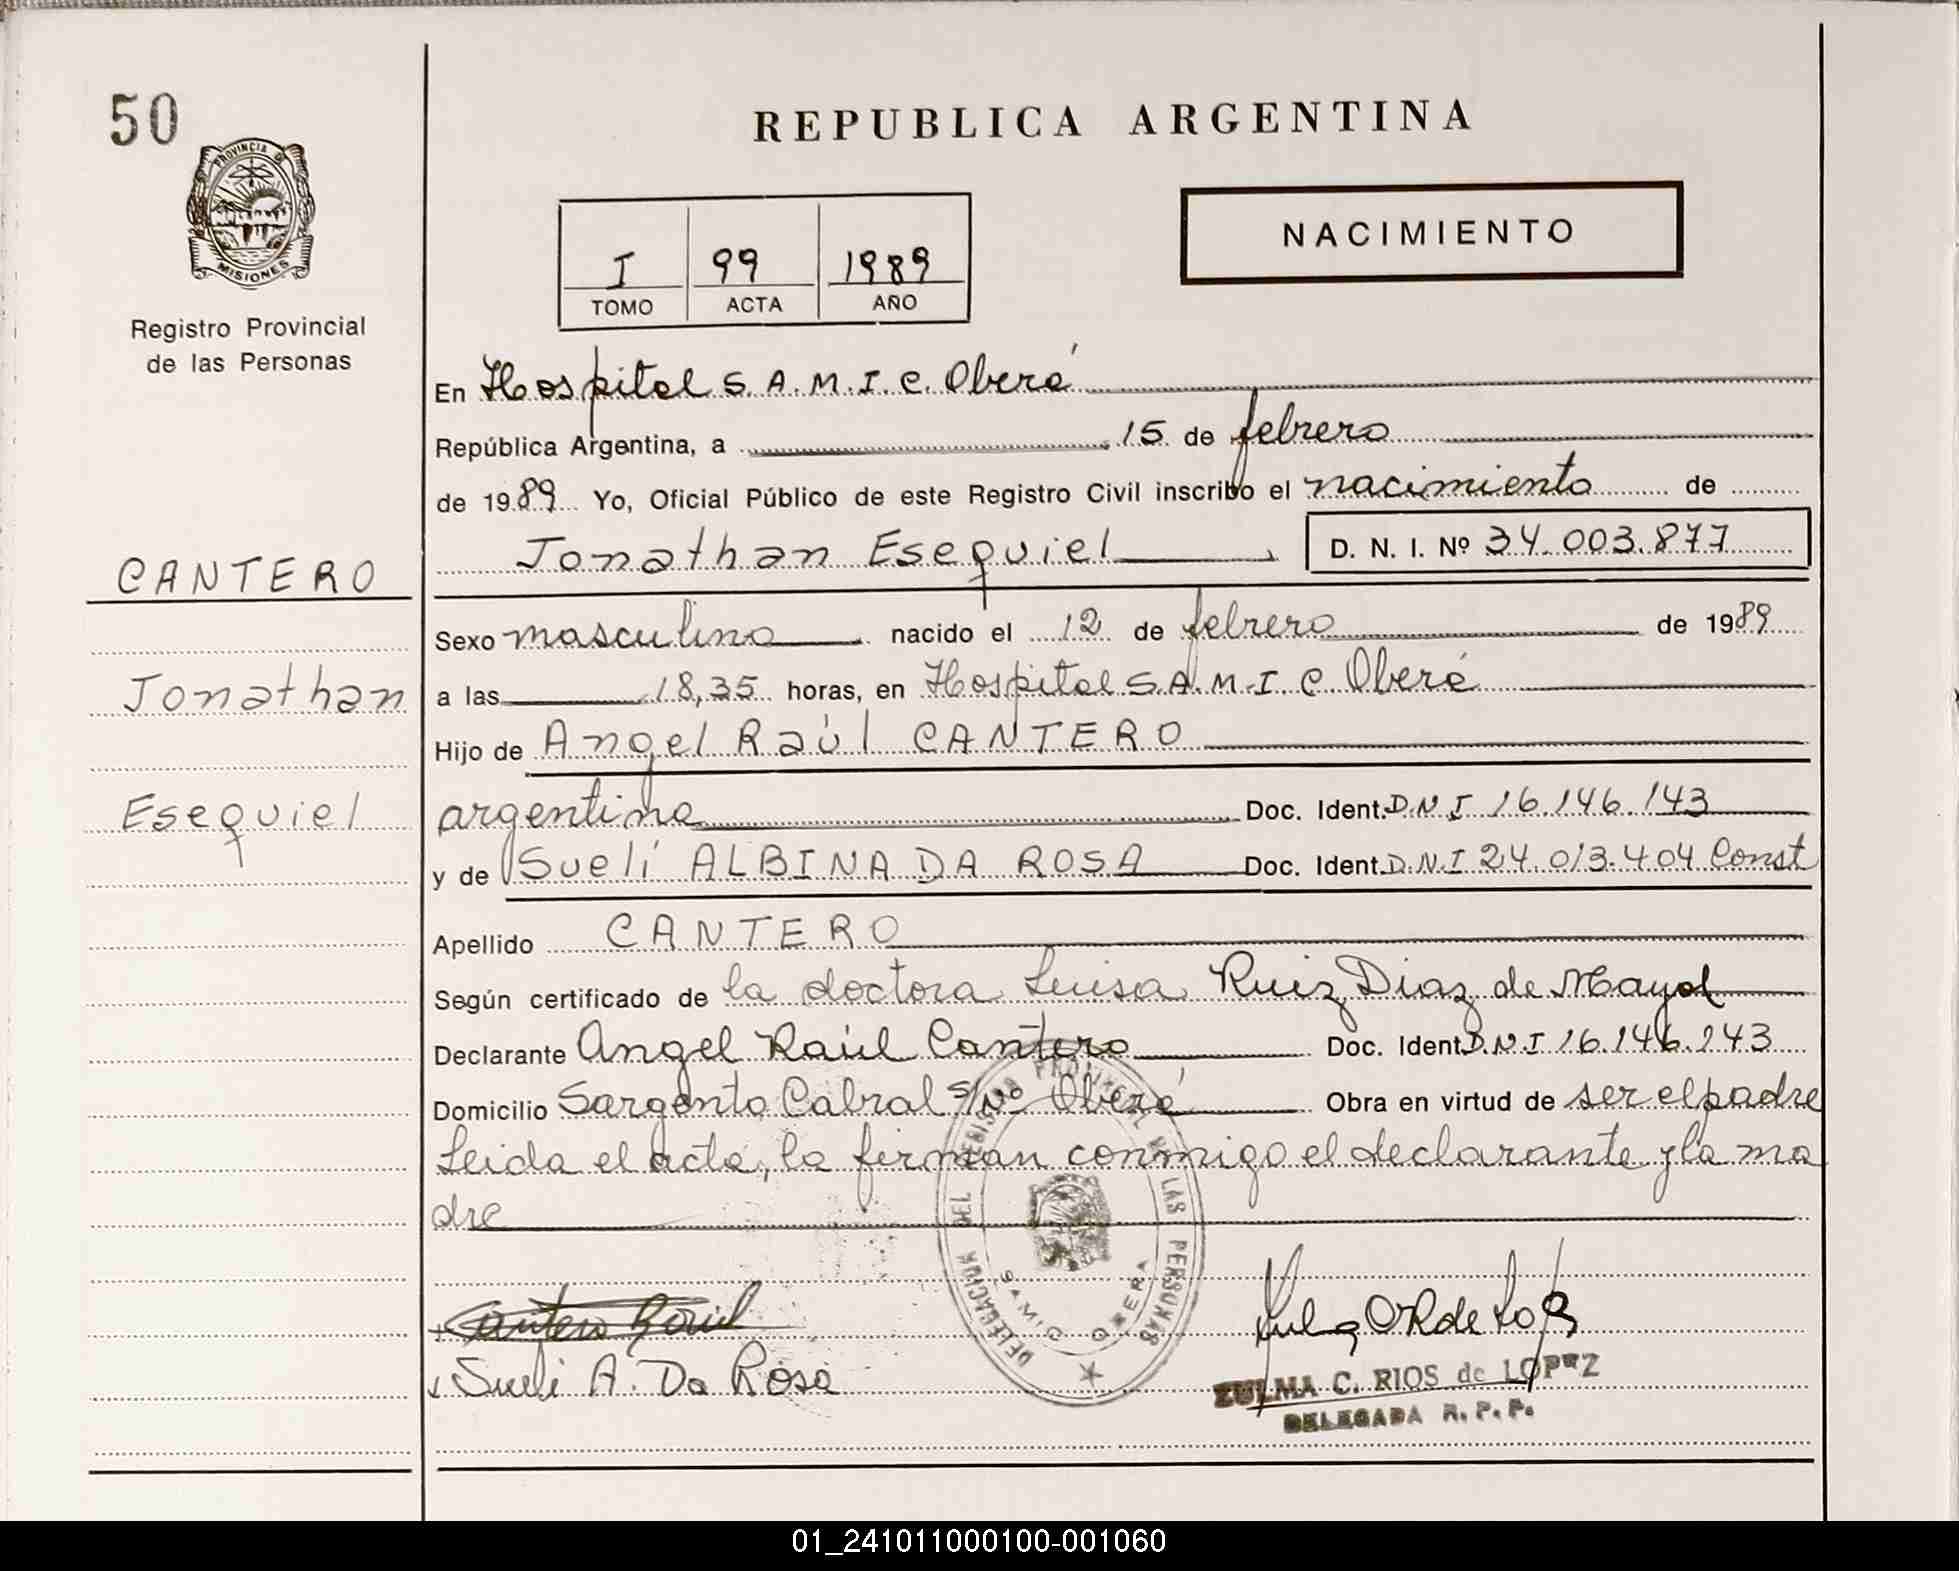 50
PROVINCIA DE
MISIONES
Registro Provincial
de las Personas
CANTERO
Jonathan
Esequiel
REPUBLICA ARGENTINA
I 99 1989
TOMO ACTA AÑO
NACIMIENTO
En Hospital S.A.M.I.C. Oberá
República Argentina, a 15 de febrero
de 1989 Yo, Oficial Público de este Registro Civil inscribo el nacimiento de
Jonathan Esequiel D. N. I. Nº 34.003.877
Sexo masculino nacido el 12 de febrero de 1989
a las 18,35 horas, en Hospital S.A.M.I.C. Oberá
Hijo de Angel Raúl CANTERO
argentina Doc. Ident. D.N.I 16.146.143
y de Suelí ALBINA DA ROSA Doc. Ident. D.N.I 24.013.404 Const
Apellido CANTERO
Según certificado de la doctora Luisa Ruiz Diaz de Mayol
Declarante Angel Raúl Cantero Doc. Ident D.N.I 16.146.143
Domicilio Sargento Cabral s/Nº Oberá Obra en virtud de ser el padre
Leida el acta, la firman conmigo el declarante y la ma
dre
DELEGACION DEL REGISTRO PROVINCIAL DE LAS PERSONAS
SAMIC OBERA
Cantero Raúl
Sueli A. Da Rosa
ZULMA C. RIOS de LOPEZ
DELEGADA R. P. P.
01_241011000100-001060